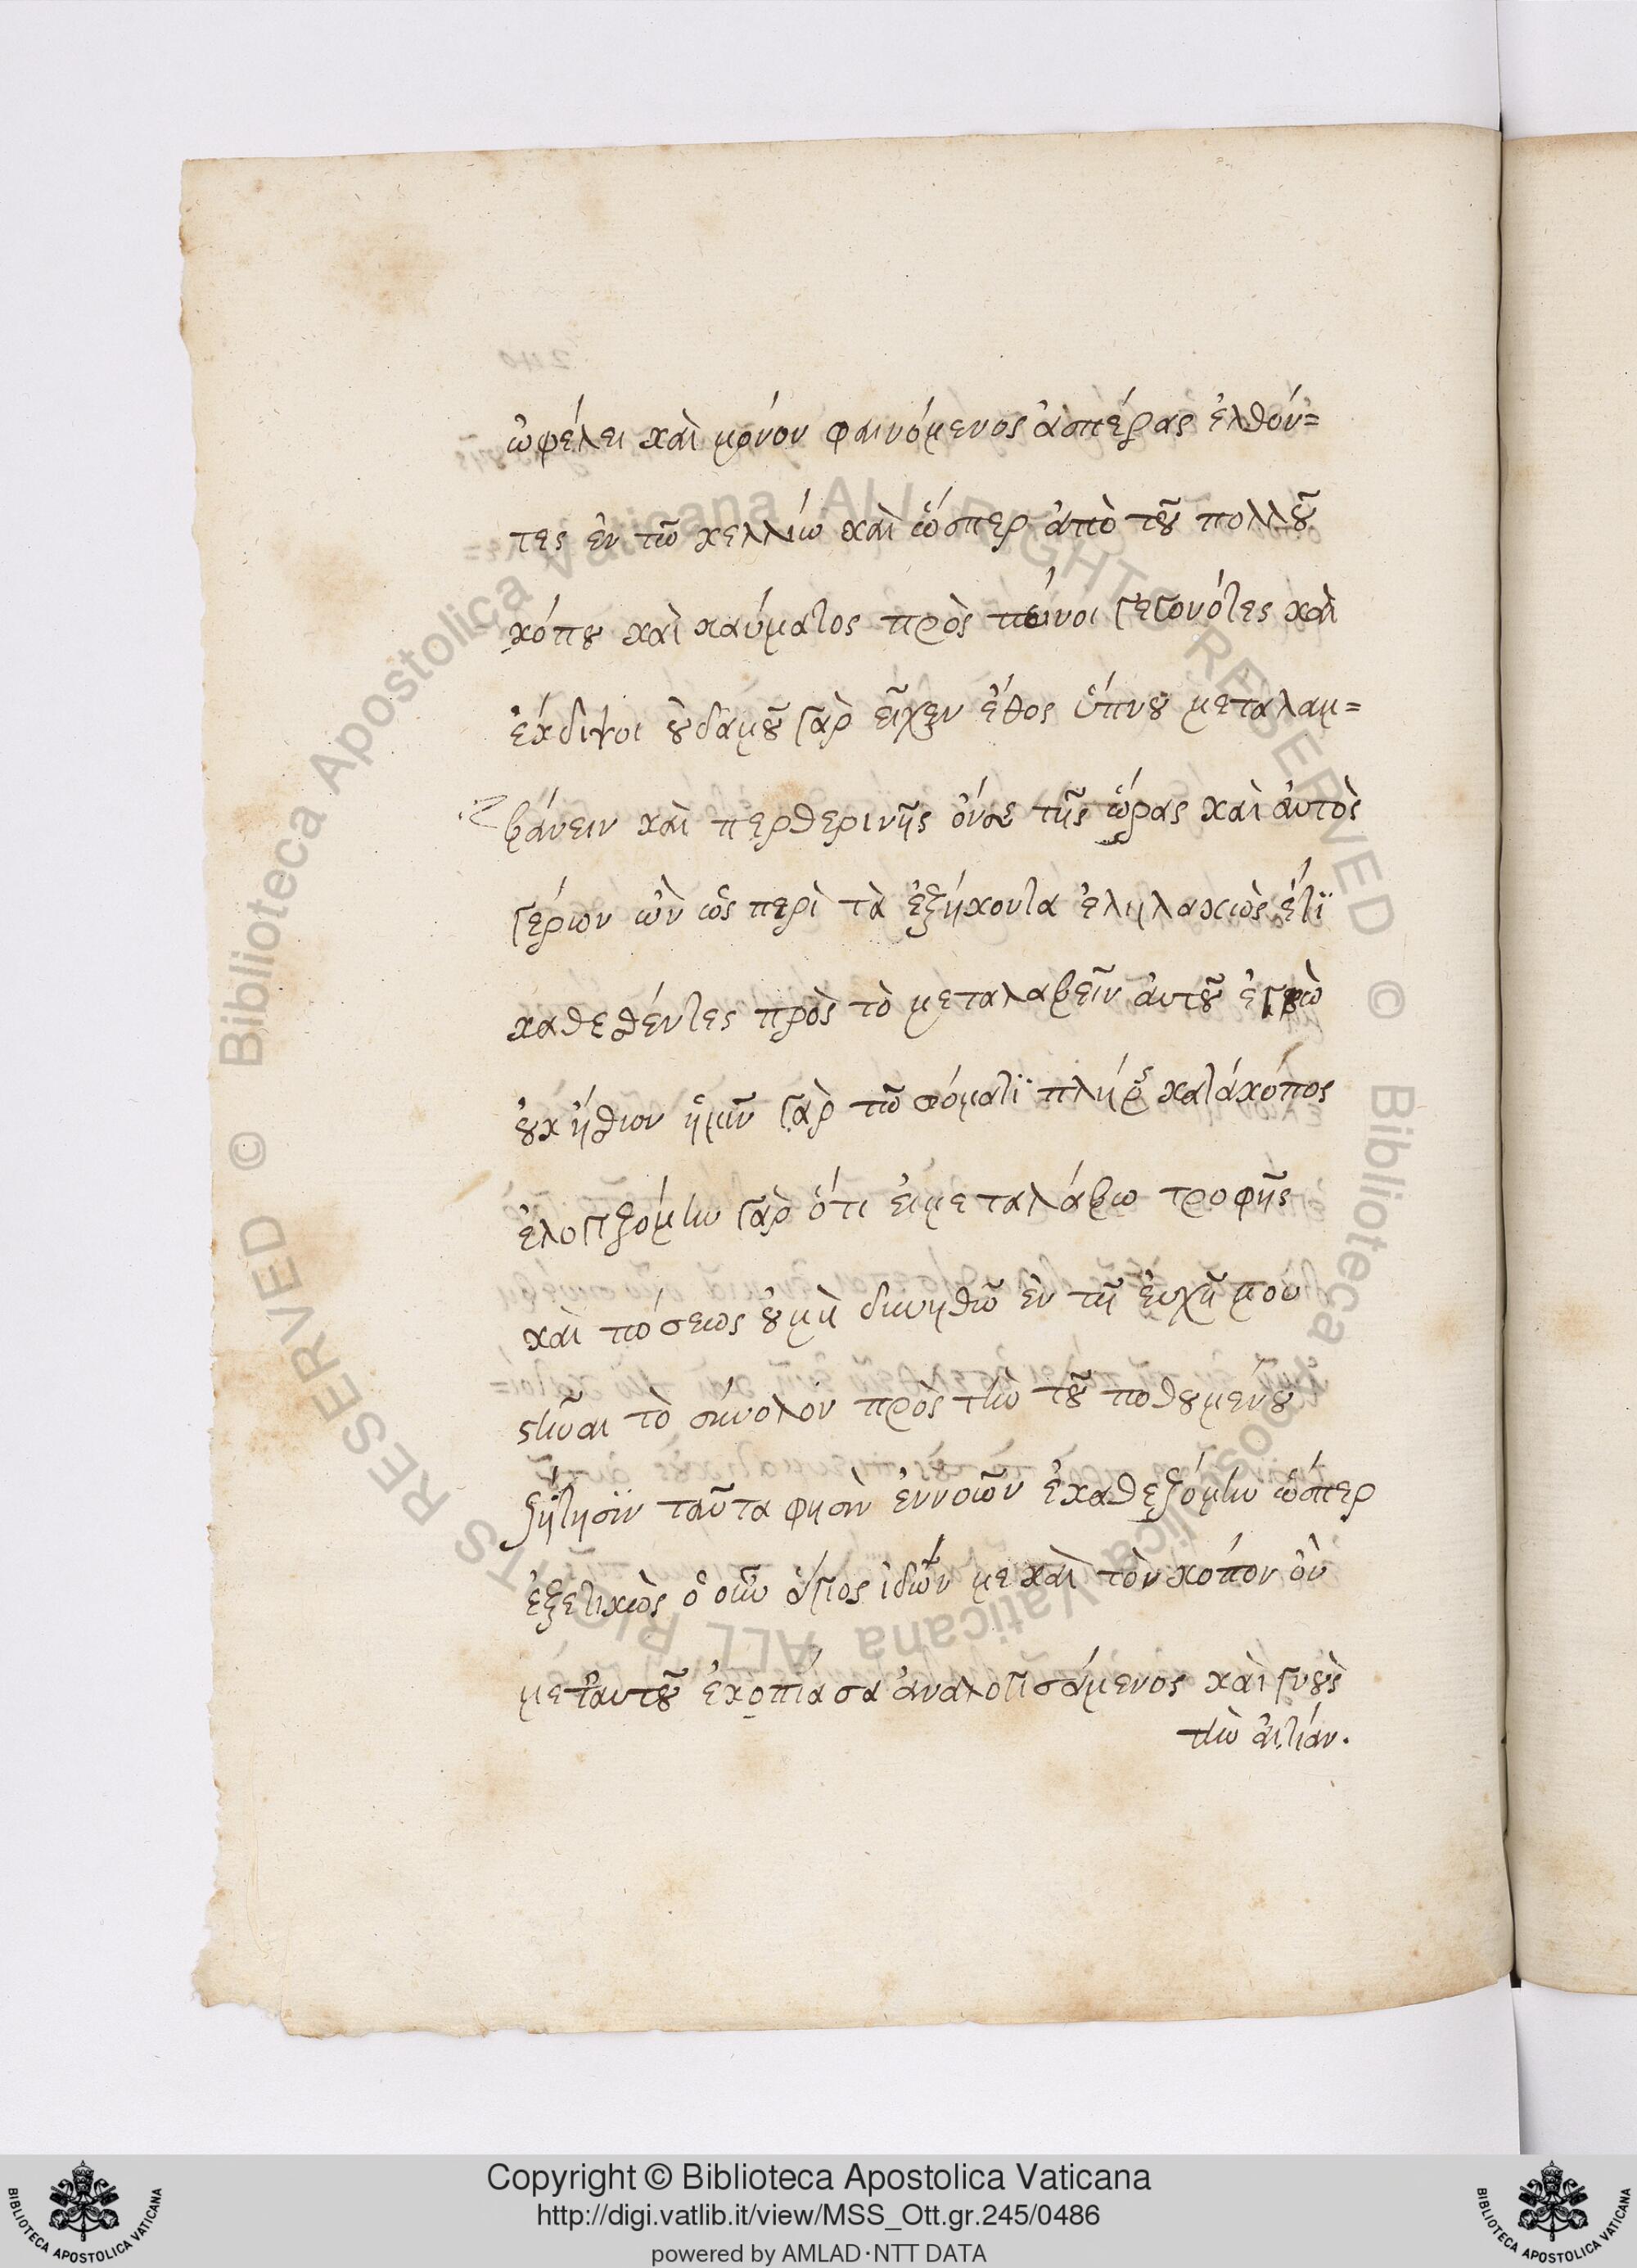 ὠφέλει καὶ μόνον φαινόμενος ἀσπέρας ἐλθόν=
τες ἐν τῶ κελλίω καὶ ὥσπερ ἀπὸ τοῦ πολλοῦ
κόπου καὶ καύματος πρὸς πείνοι γεγονότες καὶ
ἐκδιψοι οὐδαμοῦ γὰρ εἶχεν ἔθος ὕπνου μεταλαμ=
βάνειν καὶ περθερινῆς τῆς ὥρας καὶ ἀυτὸς
γέρων ὢν ὡς περὶ τὰ ἐξήκοντα ἐληλακὼς ἔτϊ
καθεθέντες πρὸς τὸ μεταλαβεῖν ἀυτοῦ ἐγὼ
οὐκ ἤθιον ἤμην γὰρ τῶ σόματϊ πλήρης κατάκόπος
ἐλογιζόμην γὰρ ὅτι ἐιμεταλάβω τροφῆς
καὶ πόσεως οὐμὴ δυνηθῶ ἐν τῆ ἐυχῆ μου
στῆναι τὸ σύνολον πρὸς τὴν τοῦ ποθουμένου
ζήτησϊν ταῦτα φησὶν ἐννοιῶν ἐκαθεζόμην ὥσπερ
ἐξετικὼς ὁ οὖν ἅγιος ἰδών με καὶ τὸν κόπον ὃν
μετἀυτοῦ ἐκοπίασα ἀναλογισάμενος καὶ γνοὺς
τὴν ἀιτίαν.
Copyright © Biblioteca Apostolica Vaticana
http://digi.vatlib.it/view/MSS_Ott.gr.245/0486
powered by AMLAD·NTT DATA